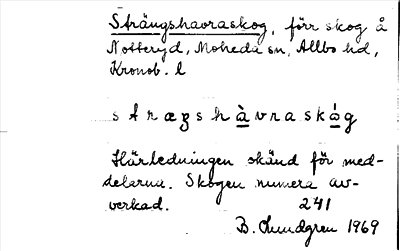 Strängshavraskog, förr skog å
Notteryd, Moheda sn, Allbo hd,
Kronob. l
strægshàvraskåg
Härledningen okänd för med-
delarna. Skogen numera av-
verkad. 241
B. Lundgren 1969